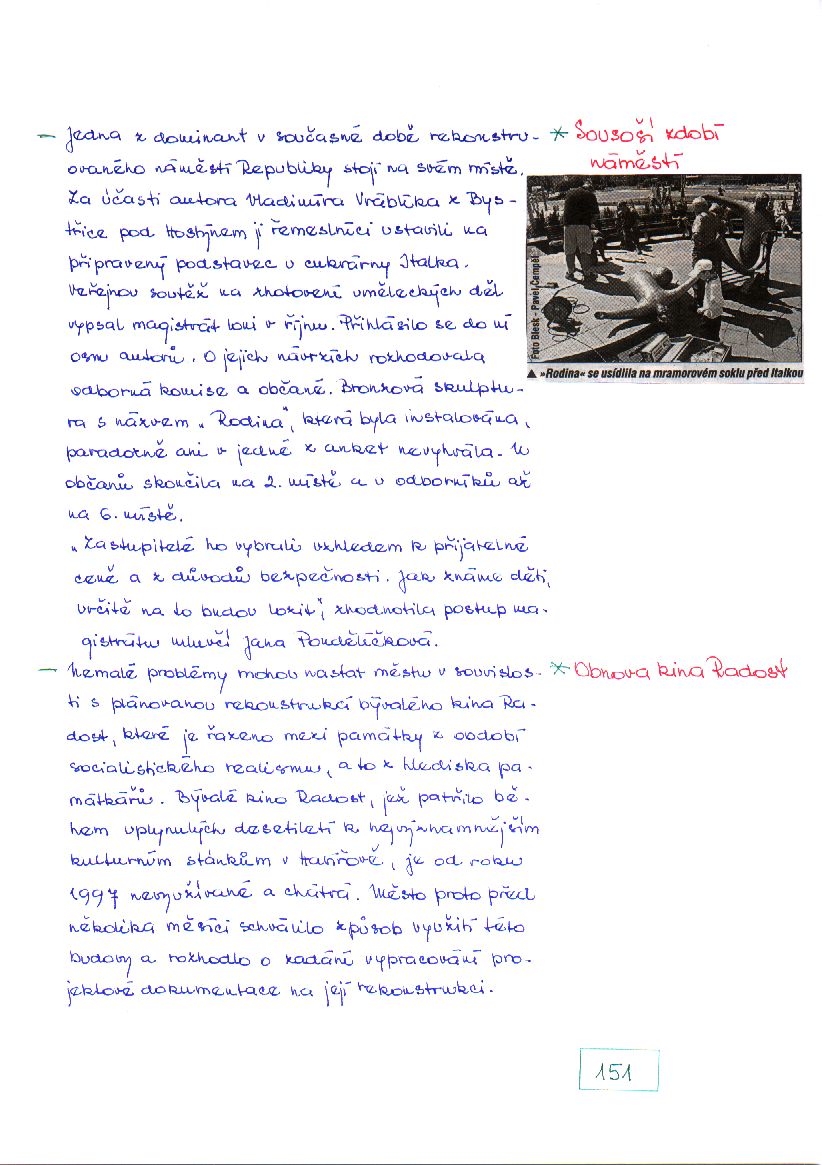 – Jedna z dominant v současné době rekonstru-
ovaného náměstí Republiky stojí na svém místě.
Za účasti autora Vladimíra Vráblíka z Bys-
třice pod Hostýnem ji řemeslníci ustavili na
připravený podstavec u cukrárny Italka.
Veřejnou soutěž na zhotovení uměleckých děl
vypsal magistrát loni v říjnu. Přihlásilo se do ní
osm autorů. O jejich návrzích rozhodovala
odborná komise a občané. Bronzová skulptu-
ra s názvem „Rodina", která byla instalována,
paradoxně ani v jedné z anket nevyhrála. U
občanů skončila na 2. místě a u odborníků až
na 6. místě.
„Zastupitelé ho vybrali vzhledem k přijatelné
ceně a z důvodů bezpečnosti. Jak známe děti,
určitě na to budou lozit", zhodnotila postup ma-
gistrátu mluvčí Jana Pondělíčková.
– Nemalé problémy mohou nastat městu v souvislos-
ti s plánovanou rekonstrukcí bývalého kina Ra-
dost, které je řazeno mezi památky z období
socialistického realismu, a to z hlediska pa-
mátkářů. Bývalé kino Radost, jež patřilo bě-
hem uplynulých desetiletí k nejvýznamnějším
kulturním stánkům v Havířově, je od roku
1997 nevyužívané a chátrá. Město proto před
několika měsíci schválilo způsob využití této
budovy a rozhodlo o zadání vypracování pro-
jektové dokumentace na její rekonstrukci.
* Sousoší zdobí
náměstí
Foto Blesk - Pavel Čempěl
▲ »Rodina« se usídlila na mramorovém soklu před Italkou
* Obnova kina Radost
151